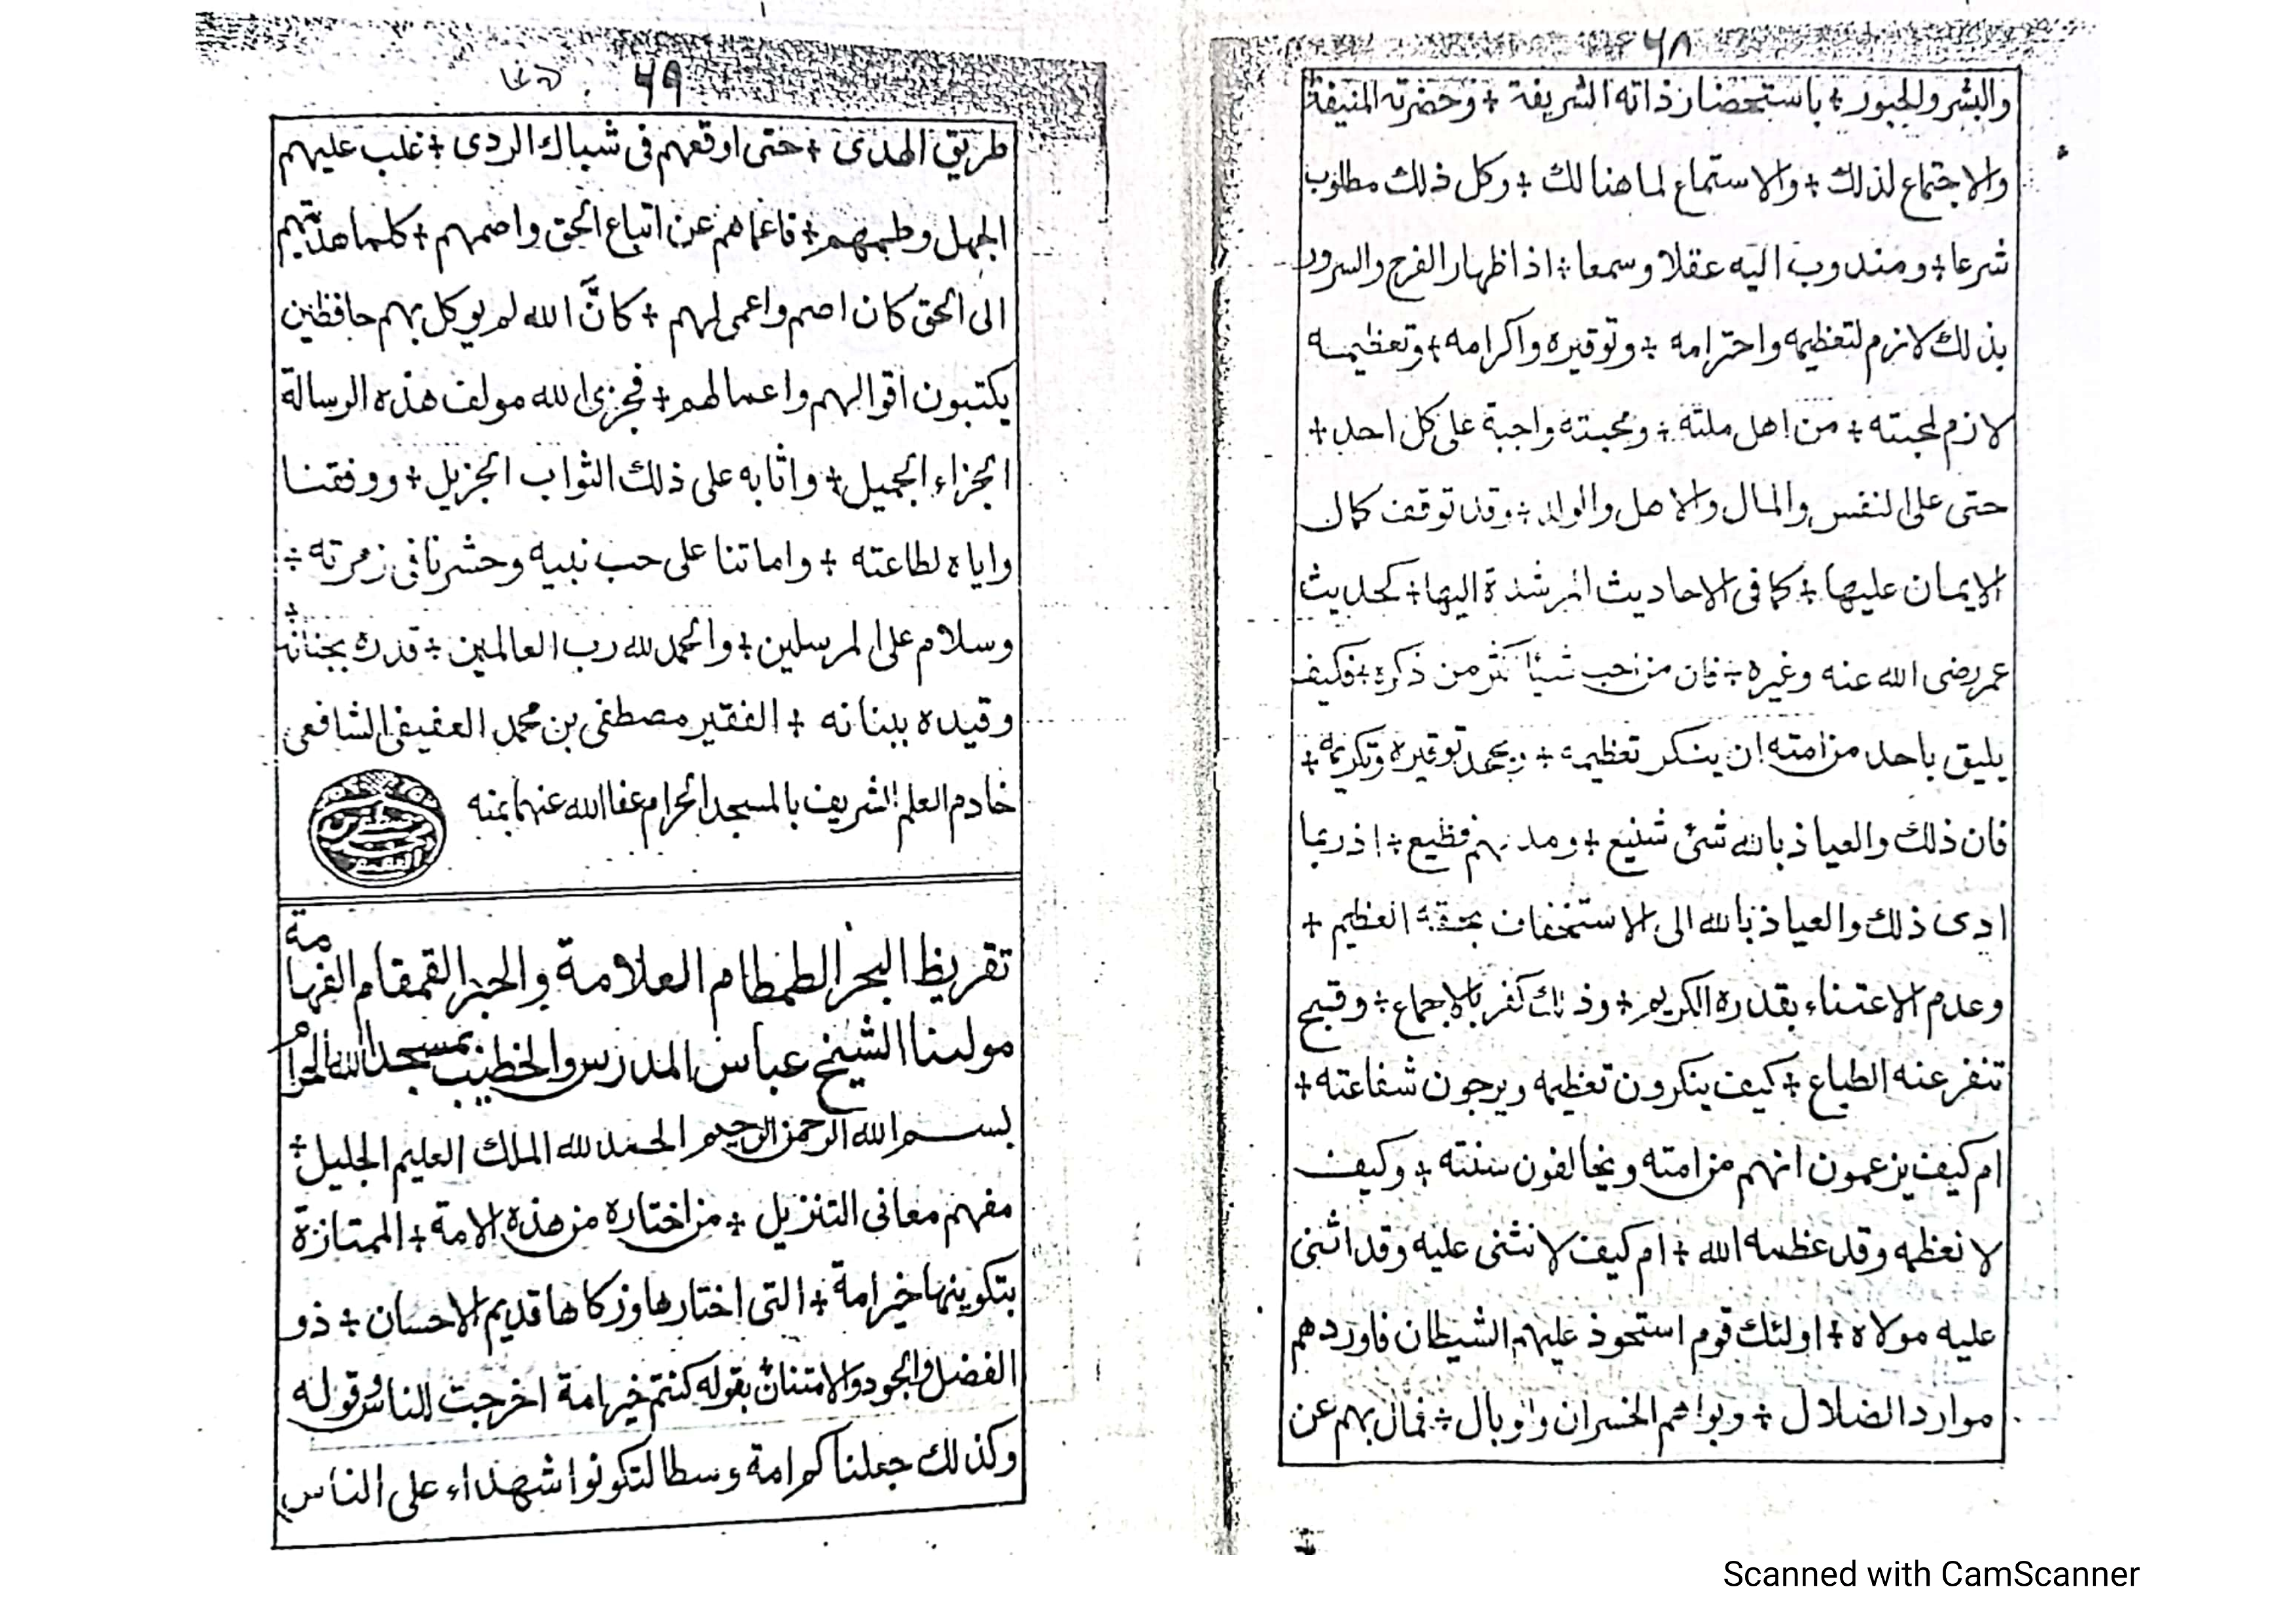 ٦٨
والبشر والحبور + باستحضار ذاته الشريفة + وحضرته المنيفة
والاجتماع لذلك + والاستماع لما هنالك + وكل ذلك مطلوب
شرعا + ومندوب اليه عقلا وسمعا + اذ اظهار الفرح والسرور
بذلك لازم لتعظيمه واحترامه + وتوقيره واكرامه + وتعظيمه
لازم لمحبته + من اهل ملته + ومحبته واجبة على كل احد +
حتى على النفس والمال والاهل والولد + وقد توقف كمال
الايمان عليها + كما فى الاحاديث المرشدة اليها + كحديث
عمر رضى الله عنه وغيره + فان من احب شيئا اكثر من ذكره + فكيف
يليق باحد من امته ان ينكر تعظيمه + ويجحد توقيره وتكريمه +
فان ذلك والعياذ بالله شئ شنيع + ومد نهم فظيع + اذ ربما
ادى ذلك والعياذ بالله الى الاستخفاف بحقه العظيم +
وعدم الاعتناء بقدره الكريم + وذلك كفر بالاجماع + وقبيح
تنفر عنه الطباع + كيف ينكرون تعظيمه ويرجون شفاعته +
ام كيف يزعمون انهم من امته ويخالفون سنته + وكيف
لا نعظمه وقد عظمه الله + ام كيف لا نثنى عليه وقد اثنى
عليه مولاه + اولئك قوم استحوذ عليهم الشيطان فاوردهم
موارد الضلال + وبواهم الخسران والوبال + فمال بهم عن
٦٩
طريق الهدى + حتى اوقعهم فى شباك الردى + غلب عليهم
الجهل وطمهم + فاعماهم عن اتباع الحق واصمهم + كلما هديتهم
الى الحق كان اصم واعمى لهم + كانَّ الله لم يوكل بهم حافظين
يكتبون اقوالهم واعمالهم + فجزى الله مولف هذه الرسالة
الجزاء الجميل + واثابه على ذلك الثواب الجزيل + ووفقنا
واياه لطاعته + واماتنا على حب نبيه وحشرنا فى زمرته +
وسلام على المرسلين + والحمد لله رب العالمين + قدرك بجنانه
وقيده ببنانه + الفقير مصطفى بن محمد العفيفى الشافعى
خادم العلم الشريف بالمسجد الحرام عفا الله عنهما بمنه
تقريظ البحر الطمطام العلامة والحبر القمقام الفهامة
مولىنا الشيخ عباس المدرس والخطيب بمسجد الله الحرام
بسم الله الرحمن الرحيم الحمد لله الملك العليم الجليل +
مفهم معانى التنزيل + من اختاره من هذه الامة + الممتازة
بتكوينها خير امة + التى اختارها وزكاها قديم الاحسان + ذو
الفضل والجود والامتنان بقوله كنتم خير امة اخرجت للناس وقوله
وكذلك جعلناكم امة وسطا لتكونوا شهداء على الناس
Scanned with CamScanner